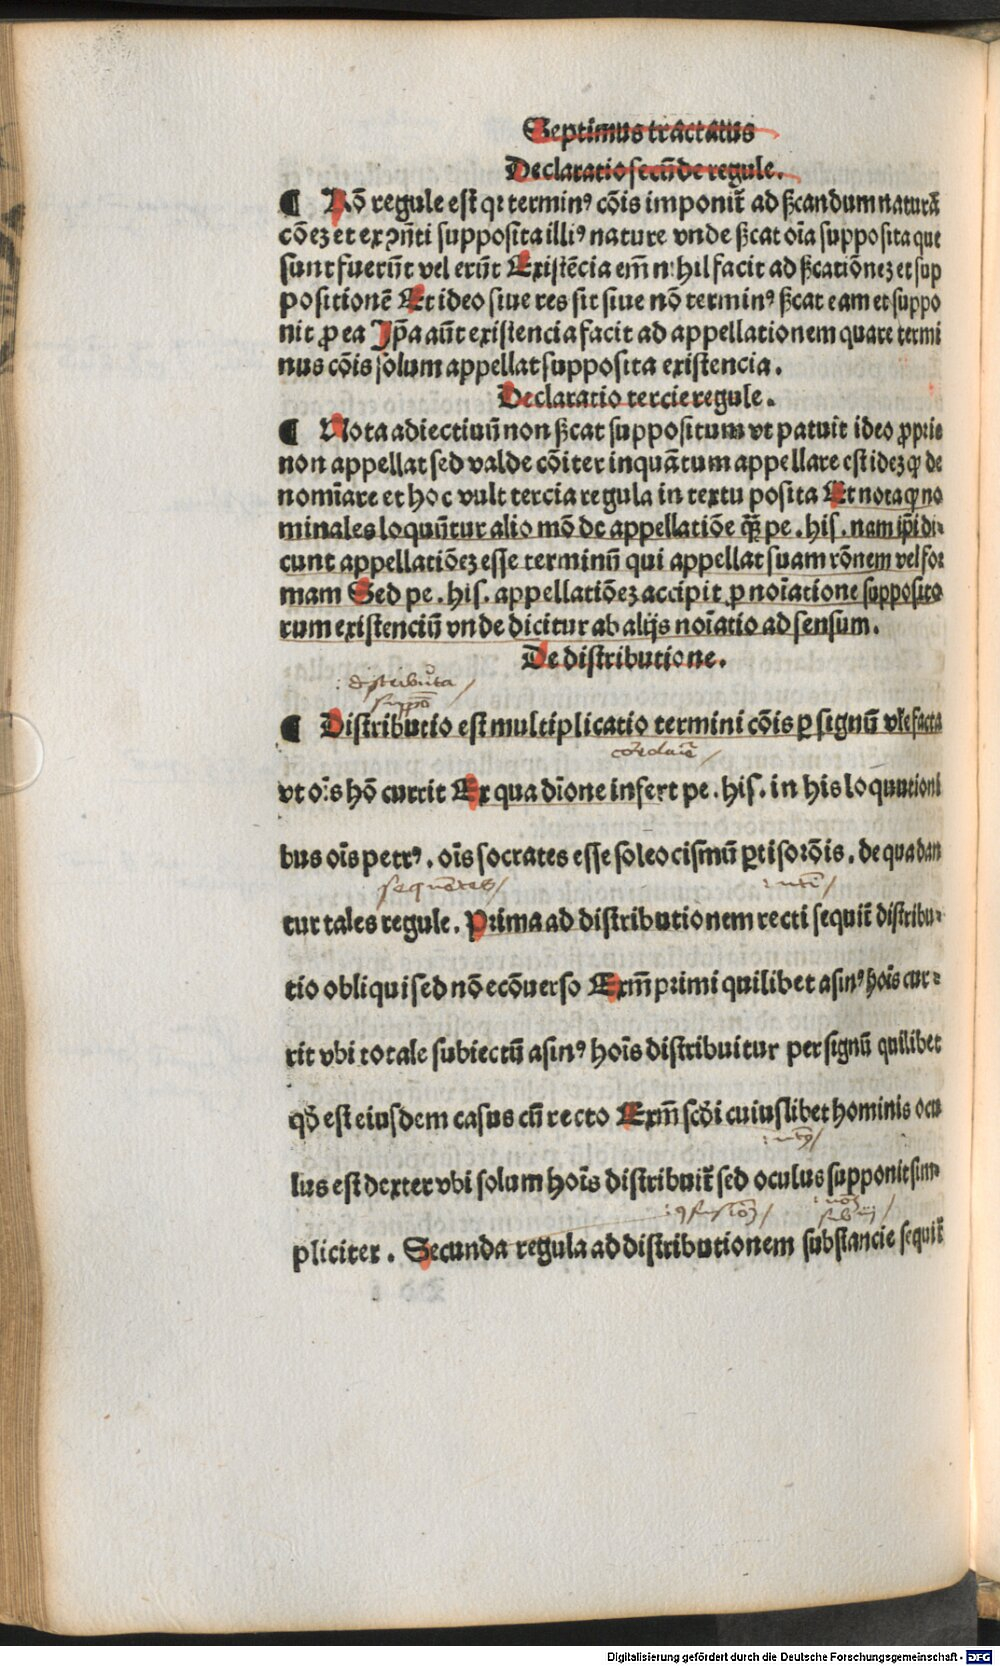 Septimus tractatus
Declaratio secūde regule.
¶ Rō regule est qr terminꝰ cōis imponit̄ ad ſʒcandum naturā
cōeʒ et exꝯñti supposita illiꝰ nature vnde ſʒcat oīa supposita que
sunt fuerūt vel erūt Existēcia em̄ nihil facit ad ſʒcationeʒ et sup
positionē Et ideo siue res sit siue nō terminꝰ ſʒcat eam et suppo
nit ꝓ ea Ip̄a aūt existencia facit ad appellationem quare termi
nus cōis solum appellat supposita existencia.
Declaratio tercie regule.
¶ Nota adiectiuū non ſʒcat suppositum vt patuit ideo ꝓprie
non appellat sed valde cōiter inquātum appellare est ideʒ ꝙ de
nomīare et hoc vult tercia regula in textu posita Et nota ꝙ no
minales loquūtur alio mō de appellatiōe q̄ʒ pe. his. nam ip̄i di⸗
cunt appellatiōeʒ esse terminū qui appellat suam rōnem vel for
mam Sed pe. his. appellatiōeʒ accipit ꝓ noīatione supposito
rum existenciū vnde dicitur ab alijs noīatio ad sensum.
De distributione.
: distributa /
suppō
¶ Distributio est multiplicatio termini cōis ꝑ signū vłe facta
vt oīs hō currit Ex qua dīone infert pe. his. in his loquutioni
bus oīs petrꝰ. oīs socrates esse soleocismū ꝑtisorōis. de qua dan
tur tales regule. Prima ad distributionem recti sequit̄ distribu⸗
tio obliqui sed nō ecōuerso Exm̄ primi quilibet asinꝰ hoīs cur⸗
rit vbi totale subiectū asinꝰ hoīs distribuitur per signū quilibet
qd̄ est eiusdem casus cū recto Exm̄ scdi cuiuslibet hominis ocu
lus est dexter vbi solum hoīs distribuit̄ sed oculus supponit sim⸗
pliciter. Secunda regula ad distributionem substancie sequit̄
Digitalisierung gefördert durch die Deutsche Forschungsgemeinschaft - DFG